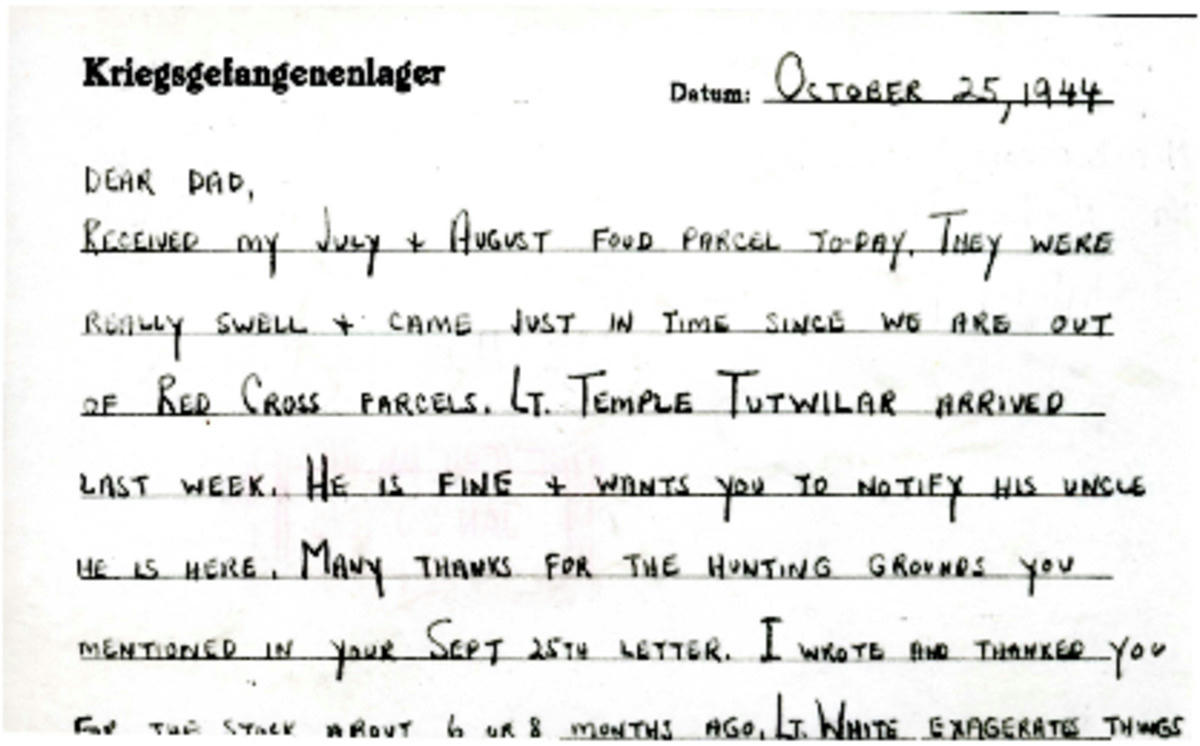 Kriegsgefangenenlager
Datum: OCTOBER 25, 1944
DEAR DAD,
RECEIVED MY JULY + AUGUST FOOD PARCEL TO-DAY. THEY WERE
REALLY SWELL + CAME JUST IN TIME SINCE WE ARE OUT
OF RED CROSS PARCELS. LT. TEMPLE TUTWILAR ARRIVED
LAST WEEK. HE IS FINE + WANTS YOU TO NOTIFY HIS UNCLE
HE IS HERE. MANY THANKS FOR THE HUNTING GROUNDS YOU
MENTIONED IN YOUR SEPT 25TH LETTER. I WROTE AND THANKED YOU
FOR THE STOCK ABOUT 6 OR 8 MONTHS AGO. LT. WHITE EXAGERATES THINGS